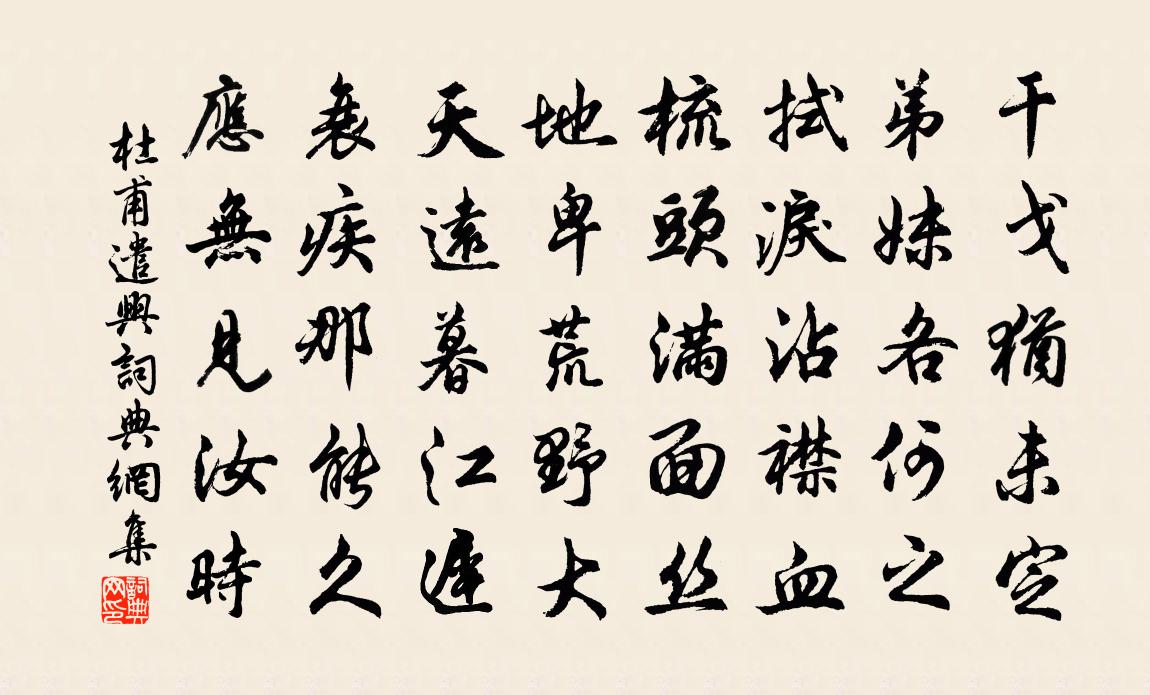 干戈猶未定
弟妹各何之
拭淚沾襟血
梳頭滿面丝
地卑荒野大
天遠暮江遲
衰疾那能久
應無見汝時
杜甫遣興詞典網集
詞典网印